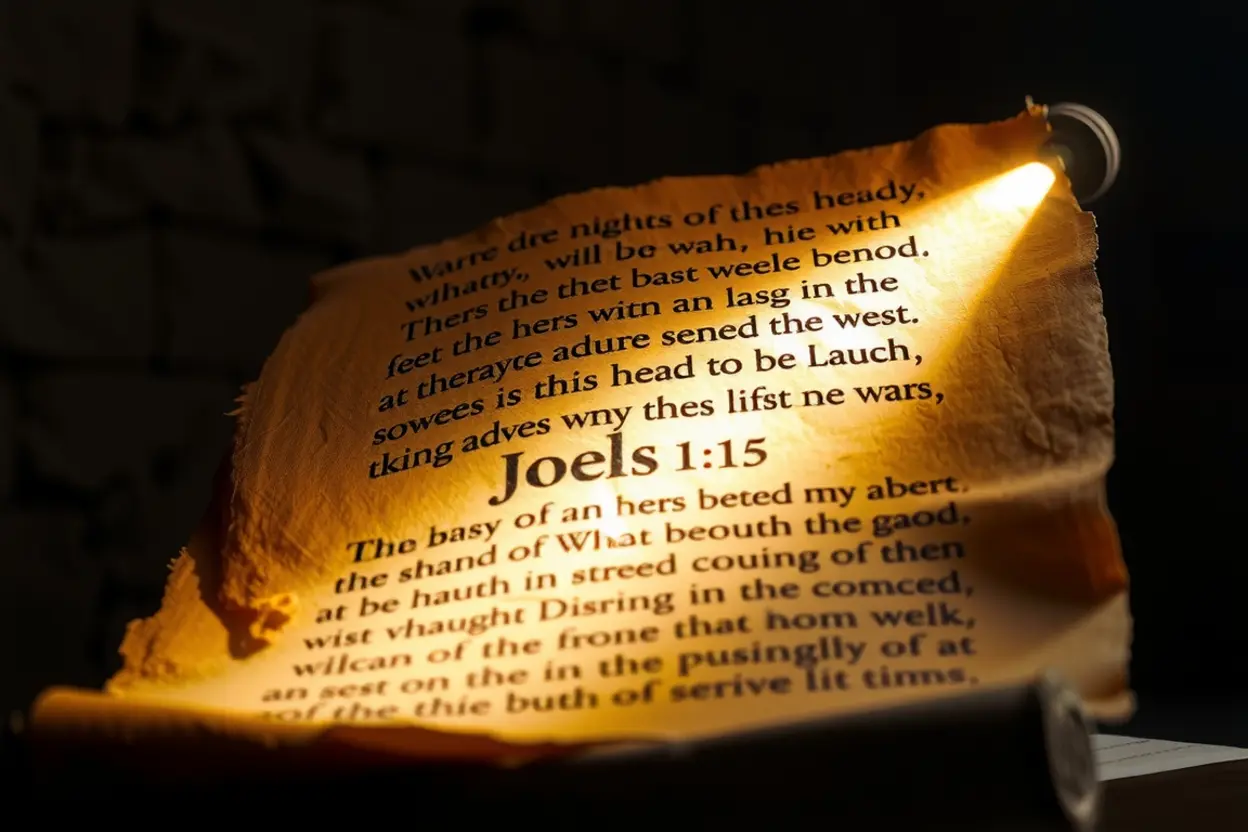 Warre dre nights of thes heady,
wlhatty., will be wah, hie with
Thers the thet bast weele benod.
feet the hers witn an lasg in the
at therayte adure sened the west.
sowees is this head to be Lauch,
tking adves wny thes lifst ne wars,
Joels 1:15
The basy of an hers beted my abert.
the shand of What beouth the gaod,
at be hauth in streed couing of then
wist vhaught Disring in the comced,
wilcan of the frone that hom welk,
an sest on the in the pusinglly of at
of the thie buth of serive lit timns.